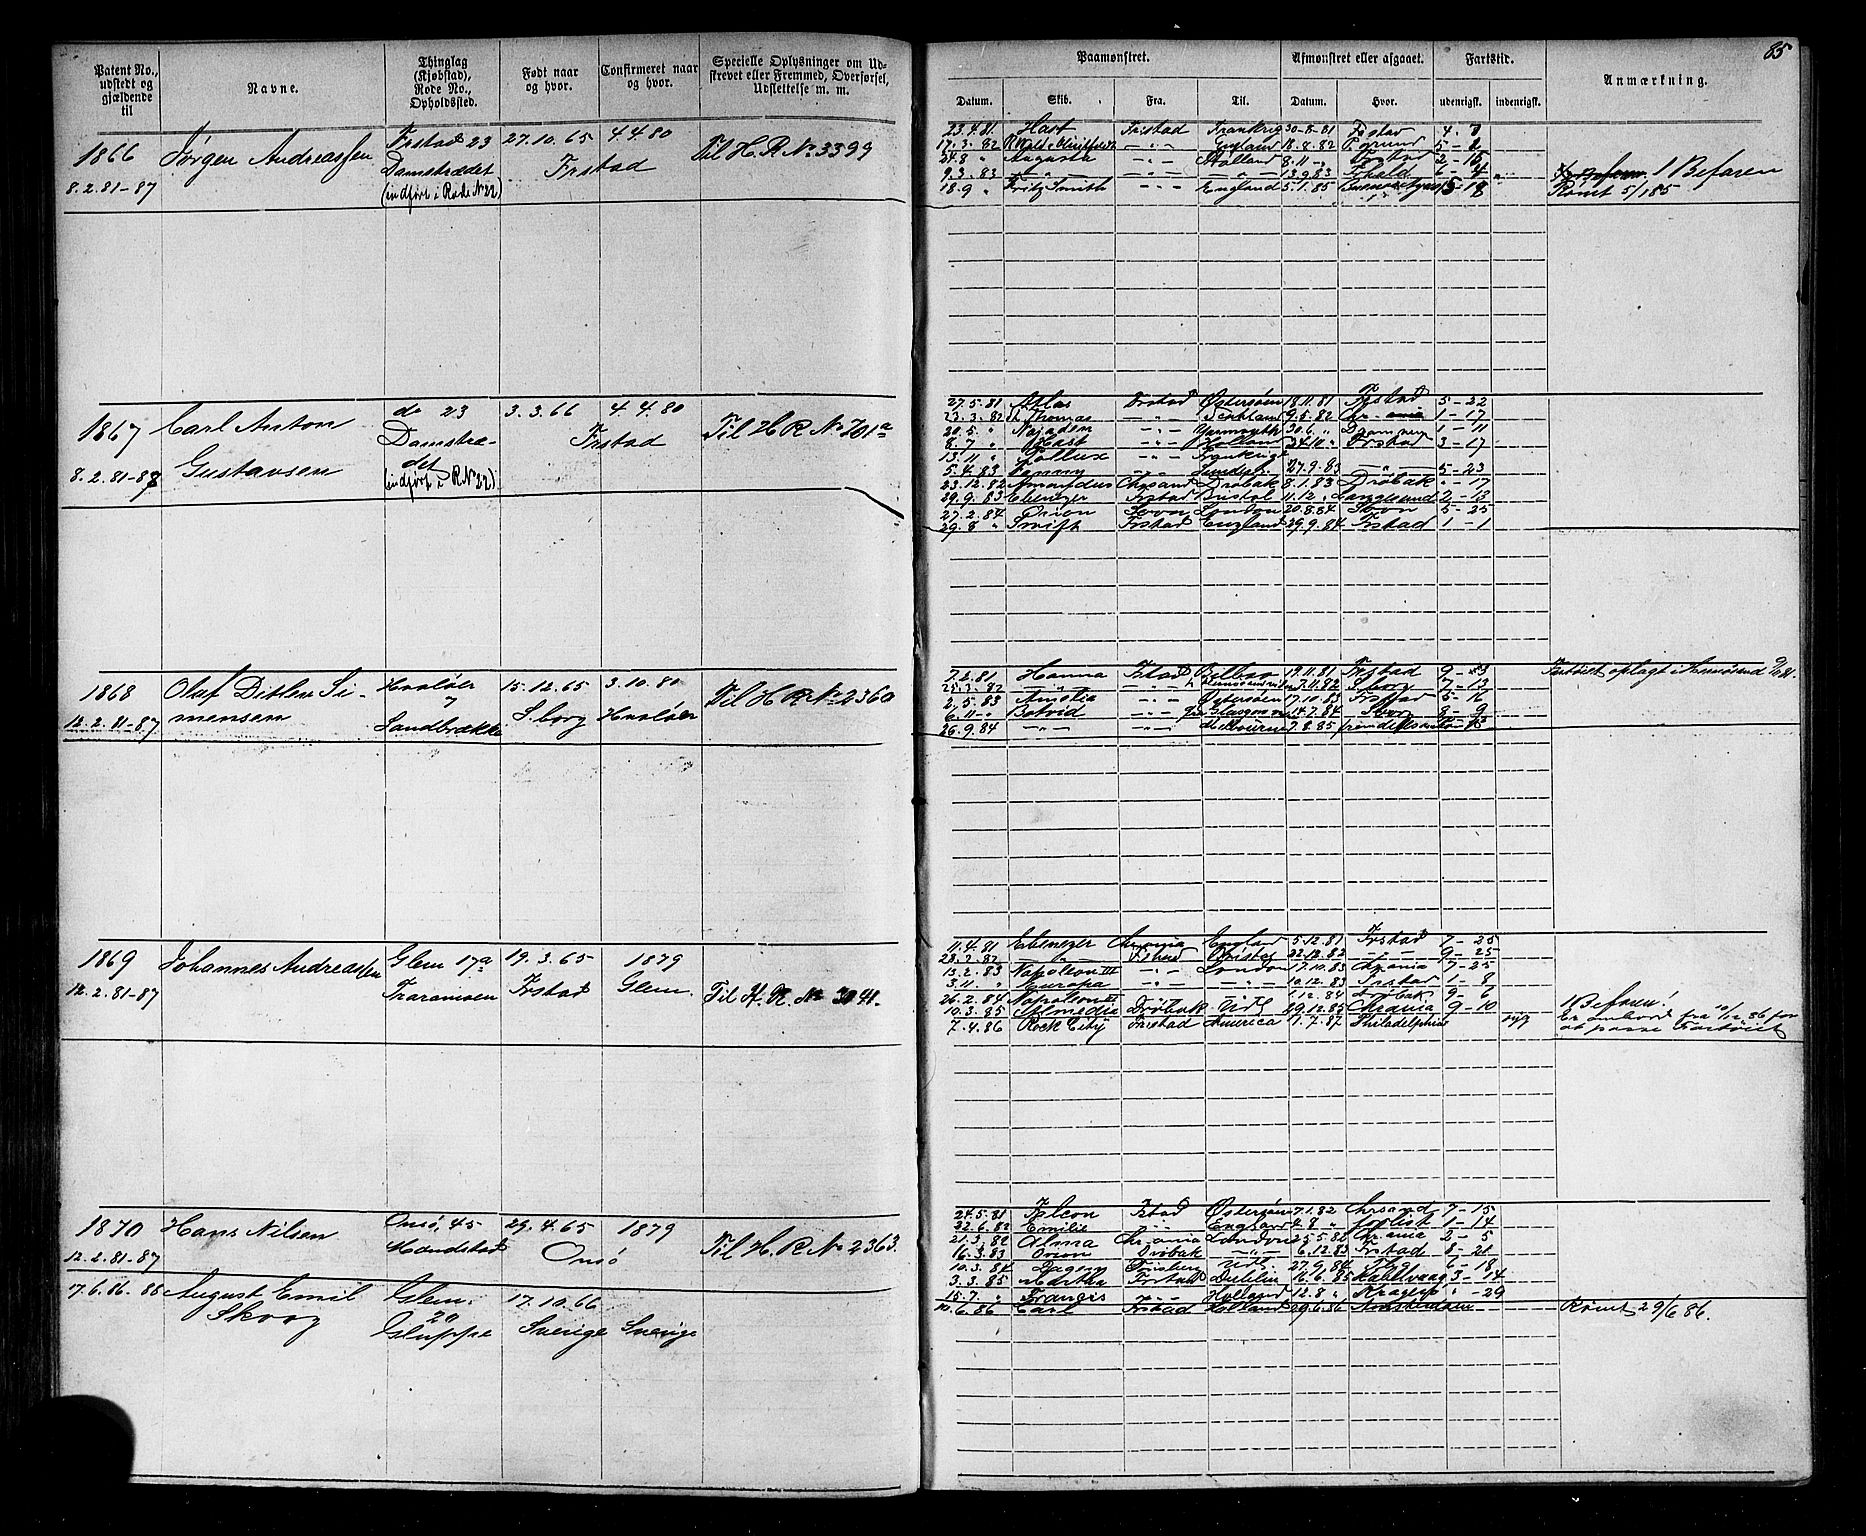 Patent No., udstedt og gjældende til
Navne.
Thinglag (Kjøbstad), Rode No., Opholdssted.
Født naar og hvor.
Confirmeret naar og hvor.
Specielle Oplysninger om Udskrevet eller Fremmed, Overførsel, Udslettelse m. m.
Paamønstret.
Afmønstret eller afgaaet.
Fartstid.
Anmærkning.
85
Datum. Skib. Fra. Til. Datum. Hvor. udenrigsk. indenrigsk.
1866 Jørgen Andreassen Frstad 23 27.10.65 4.4.80 Til H. R. No 3399
8.2.81-87 Damstrædet Frstad
(indført i Rode No 22)
23.4.81 Hast Fristad Frankrig 30-8-81 Frstad
17.3.82 England 18.8.82
24.8 " Augusta -"- 8.11 -"- Frstad 2-15
9.3.83 -"- -"- -"- 13.9.83 Frhald 6-4
18.9 " Fritz Smith -"- England 5.1.85
1 Befaren
Rømt 5/1 85
1867 Carl Anton do 23 3.3.66 4.4.80 Til H R No 701a
8.2.81-87 Gustavsen Damstrædet Frstad
(indført i R No 22)
27.5.81 Atlas Frstad Østersøen 18.11.81 Frstad 5-22
23.3.82 Thomas -"- 9.5.82 Chr.ania 1-17
20.5 " Najaden -"- Yarmouth 30.6 " Drammen 1-11
8.7 " Hast -"- Holland 24.10 " Frstad 3-17
13.11 " Pollux -"- Frankrige
5.4.83 Fanny -"- 27.9.83 -"- 5-23
23.12.82 Amandus Chrsand Drøbak 8.1.83 Drøbak "-17
29.9.83 Ebenezer Frstad Bristol 11.12 " Langesund 2-13
27.2.84 Orion London 20.8.84 5-25
29.8 " Swift Frstad England 29.9.84 Frstad 1-1
1868 Olaf Ditlev Simensen Hvaløer 15.12.65 3.10.80 Til H R No 2360
12.2.81-87 Sandbrække S.borg Hvaløer
7.2.81 Hanna Frstad Bilbao 19.11.81 Frstad
25.3.82 -"- 7.11.82 S.borg 7-13
2.5.83 Amalia -"- Østersøen 17.10.83 Frstad 5-16
6.11 " Botvid -"- Glasgow 14.7.84 8-9
26.9.84 -"- -"- Melbourne 7.8.85
1869 Johannes Andreassen Glem 17a 19.3.65 1879 Til H. R. No 3041.
12.2.81-87 Traramoen Frstad Glem.
11.4.81 Ebenezer Chr.ania England 5.12.81 Frstad 7-25
-"- Frstad Bristol 22.12.82 -"- 9-25
13.2.83 Napoleon III -"- London 7.10.83 Chr.ania 7-25
3.11 " Europa -"- 10.12.83 Frstad 1-8
26.2.84 Napoleon III 1.12.84 Drøbak 9-6
10.3.85 Almedia Drøbak Uds. 19.12.85 Chr.ania 9-10
7.4.86 Rock City Fristad America 1.7.87 Philadelphia syg
1 Befaren!
Er ombord fra 10/12 86 for
at passe Fartøiet
1870 Hans Nilsen Onsø, 45 29.4.65 1879 Til H. R. No 2363.
12.2.81-87 Mandstad Onsø
24.5.81 Falcon Frstad Østersøen 7.1.82 Chrsand 7-15
22.6.82 Emilie " England 4.8 " forlist 1-14
21.3.82 Alma Chr.ania London 25.5.82 Chr.ania 2-5
16.3.83 Orion Drøbak -"- 6.12.83 Frstad 8-21
10.3.84 Tønsberg Uds. 27.9.84 6-18
3.3.85 Martha Frstad Dublin 16.6.85 3-14
15.7 " Francis " Holland 12.8 " Kragerø "-29
17.6.86-85 August Emil Skoog Glem. 20 Gluppe 17.10.66 Sverige Sverige
14.6.86 Carl Frstad Holland 29.6.86 Amsterdam
Rømt 29/6 86.